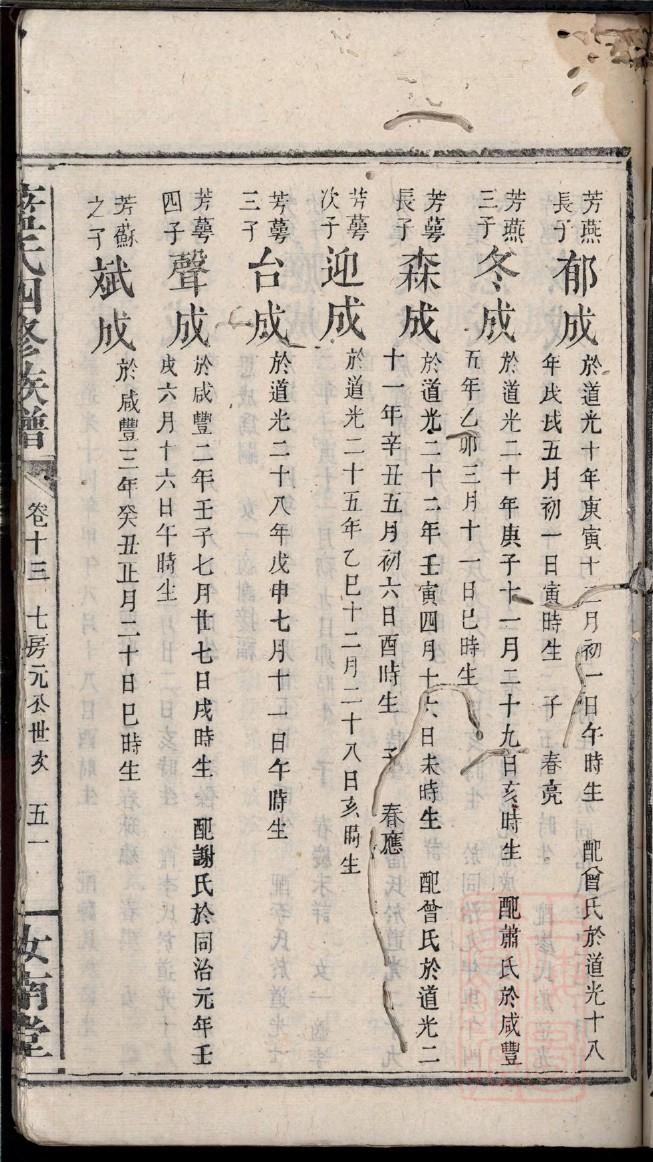 芳燕長子郁成於道光十年庚寅十二月初一日午時生 配曾氏於道光十八
年戊戌五月初一日寅時生 子 春亮
芳燕三子冬成於道光二十年庚子十一月二十九日亥時生 配蕭氏於咸豐
五年乙卯三月十一日巳時生
芳蕚長子森成於道光二十二年壬寅四月十六日未時生 配曾氏於道光二
十一年辛丑五月初六日酉時生 子 春應
芳蕚次子迎成於道光二十五年乙巳十二月二十八日亥時生
芳蕚三子台成於道光二十八年戊申七月十一日午時生
芳蕚四子聲成於咸豐二年壬子七月廿七日戌時生 配謝氏於同治元年壬
戌六月十六日午時生
芳蘇之子斌成於咸豐三年癸丑正月二十日巳時生
氏四修族譜 卷十三 七房元公世亥 五一 汝南堂